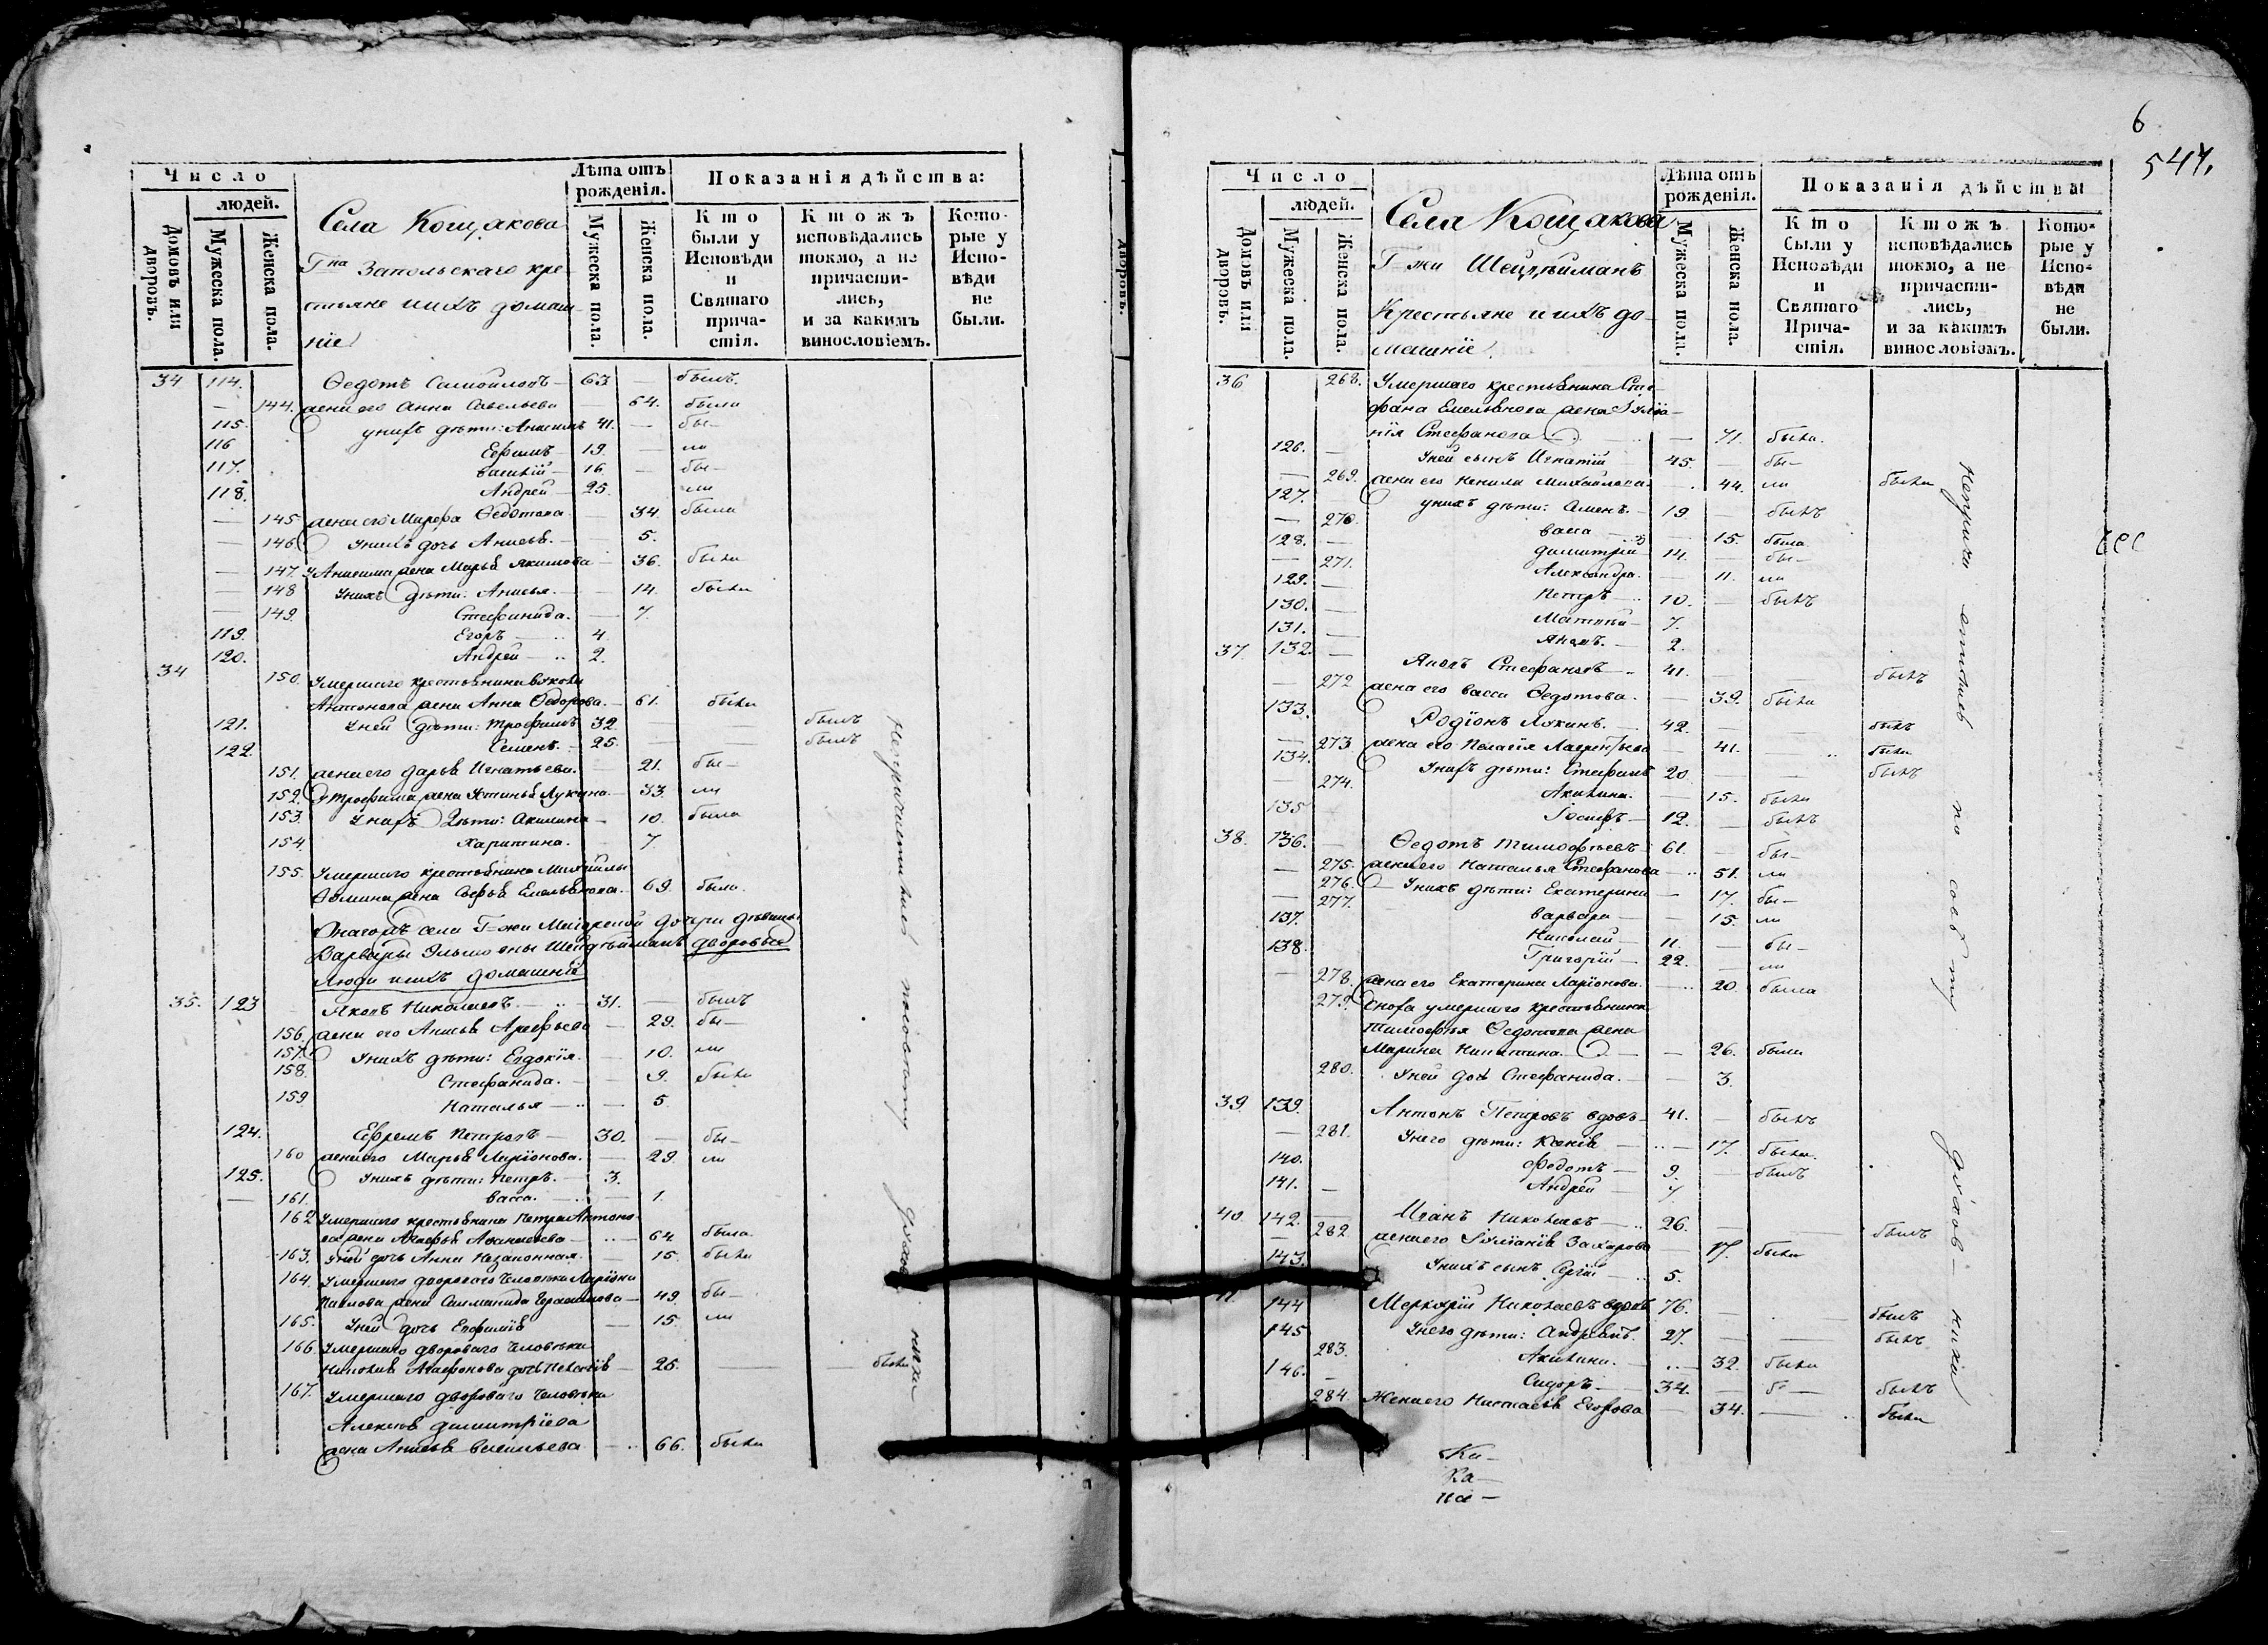 Число
людей.
Домовъ или дворовъ.
Мужеска пола.
Женска пола.
Села Кощакова
Гна Запольскаго кре-
стьяне ихъ домаш-
ніе
Лѣта отъ рожденія.
Мужеска пола.
Женска пола.
Показанія дѣйства:
Кто были у Исповѣди и Святаго причастія.
Ктожъ исповѣдались токмо, а не причасти-лись, и за какимъ винословіемъ.
Кото-рые у Испо-вѣди не были.
34 114. Ѳедотъ Самойловъ — 63 — былъ.
— 144. жена его Анна Савельева — 64. была
115. у нихъ дѣти: Анисимъ 41. — бы-
116 Ефимъ — 19. — ли
117. Василій — 16 — бы-
118. Андрей — 25. ли
— 145 жена его Марфа Ѳедотова — 34. была
— 146. У нихъ дочь Анисья. — 5.
— 147. У Анисима жена Марья Якимова — 36. была
— 148 У нихъ дѣти: Анисья. — 14. была
— 149. Стефанида. — 7.
119. Егоръ — 4
120. Андрей — 2.
34 150. Умершаго крестьянина
Антонова жена Анна Ѳедорова. — 61. была
121. У ней дѣти: Трофимъ 32 — — былъ
122. Семенъ. — 25. — — былъ
151. жена его Дарья Игнатьева. — 21. бы-
152. У Трофима жена Устинья Лукина — 33. ли
153. У нихъ дѣти: Акилина — 10. была
154. Харитина. — 7
155. Умершаго крестьянина Михайлы
Ѳомина жена Софья Емельянова. — 69. была.
Онагожъ села Г=жи Маіорской дочери дѣвицы
Варвары дворовые
люди и ихъ домашніе
35. 123 Яковъ Николаевъ. — 31. — былъ
156. жена его Анисья Арефьева — 29. бы-
157. У нихъ дѣти: Евдокія. — 10. ли
158. Стефанида. — 9. была
159 Наталья — 5.
124. Ефремъ Петровъ — 30. — бы-
160 жена его Марья Ларіонова. — 29. ли
125. У нихъ дѣти: Петръ. — 3.
— 161. Васса. — 1.
162 Умершаго крестьянина Петра Антоно-
ва жена Агафья Аѳанасьева — 64 была
163. У ней дочь Анна незаконная. — 15. была
164. Умершаго двороваго человѣка Ларіона
Павлова жена Саломанида Герасимова — 49. бы-
165. У ней дочь Евфимія — 15. ли
166. Умершаго двороваго человѣка
Агафонова дочь Пелагія — 25. — была
167. Умершаго двороваго человѣка
Алексѣя Димитріева
жена Анисья Васильева — 66. была
дворовъ.
6
544.
Число
людей.
Домовъ или дворовъ.
Мужеска пола.
Женска пола.
Села Кощакова
Г=жи
Крестьяне и ихъ до-
машніе.
Лѣта отъ рожденія.
Мужеска пола.
Женска пола.
Показанія дѣйства
Кто были у Исповѣди и Святаго Прича-стія.
Ктожъ исповѣдались токмо, а не причасти-лись, и за какимъ винословіемъ.
Кото-рые у Испо-вѣди не были.
36 268. Умершаго крестьянина Сте-
фана Емельянова жена Іуліа-
нія Стефанова — 71. была.
126. — У ней сынъ Игнатій 45. — бы-
— 269. жена его Ненила Михайлова — 44. ли была
127. у нихъ дѣти: Семенъ. — 19. — былъ
— 270. Васса — 15. была
128. — Димитрій 14. — бы-
— 271. Александра. — 11. ли
129. — Петръ — 10. — былъ
130. — Матвѣй — 7.
131. — Яковъ. — 2.
37. 132. — Яковъ Стефановъ — 41. — былъ
— 272 жена его Васса Ѳедотова. — 39. была
133. Родіонъ Лукинъ. — 42. — — былъ
— 273 жена его Пелагія Лаврентьева — 41. — была
134. У нихъ дѣти: Стефанъ 20 — — былъ
— 274. Акилина. — 15. была
135 Іосифъ — 12. — былъ
38. 136. — Ѳедотъ Тимофѣевъ — 61. — бы-
— 275. жена его Наталья Стефанова — 51. ли
— 276. У нихъ дѣти: Екатерина — 17. бы-
— 277. Варвара — 15. ли
137. Николай — 11. — бы-
138. Григорій — 22. — ли
— 278. жена его Екатерина Ларіонова. — 20. была
279. Сноха умершаго крестьянина
Тимофѣя Ѳедотова жена
Марина Никитина. — 26. была
280. У ней дочь Стефанида. — 3.
39. 139. Антонъ Петровъ вдовъ 41. — былъ
— 281. У него дѣти: Ксенія — 17. была.
140. Ѳедотъ — 9. — былъ
141. — Андрей — 7
40. 142. — Иванъ Николаевъ — 26. — — былъ
— 282. жена его Іуліанія Захарова — 17. была
143. У нихъ сынъ Сергій — 5.
144 Меркурій Николаевъ вдовъ 76. — былъ
145 У него дѣти: Андреянъ. 27. — — былъ
283. Акилина. — 32. была
146. — Сидоръ. — 34. — былъ
284. Жена его Настасья Егорова — 34. — была
Непричистившіеся по совѣту духов- ника